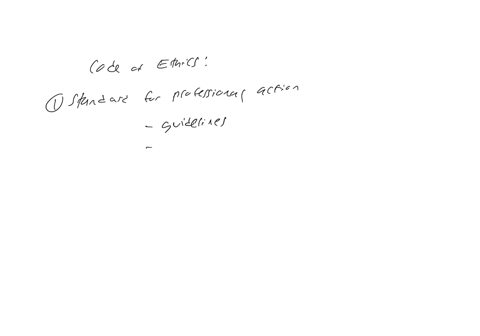 Code of Ethics:
① Standard for professional action
- guidelines
-